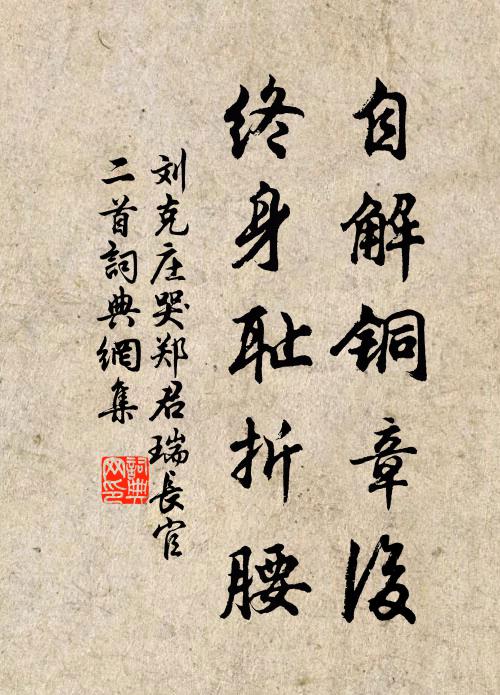 自解铜章後
终身耻折腰
刘克庄哭郑君瑞長官
二首詞典網集
詞典网印